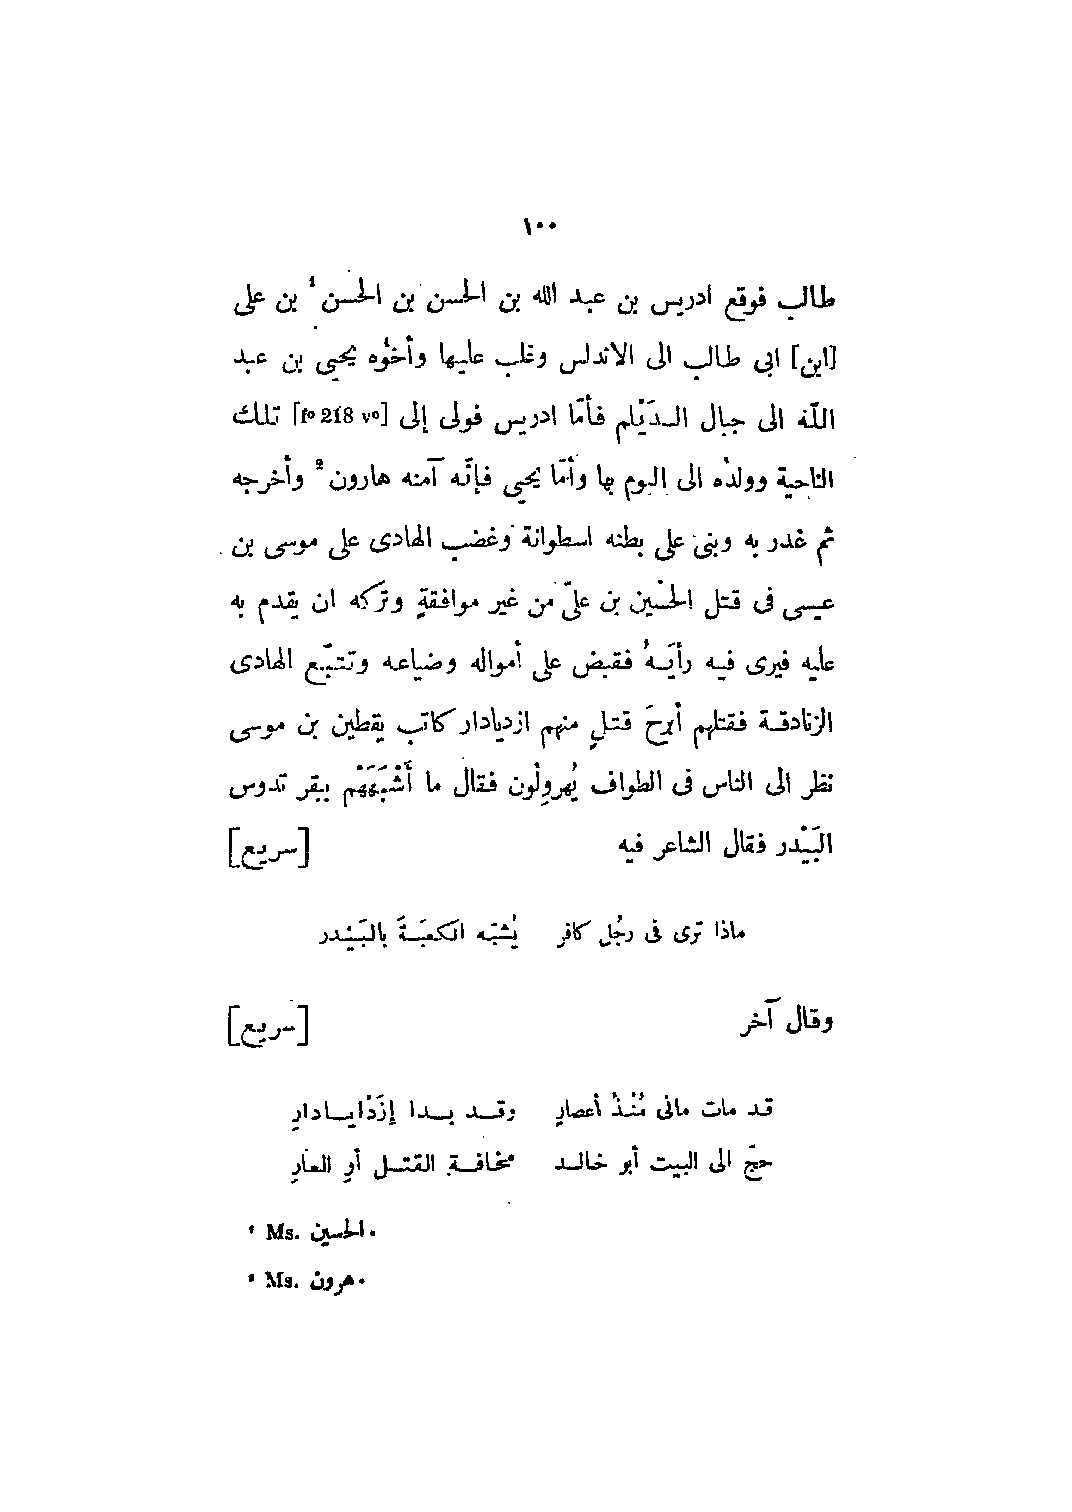 ١٠٠
طالب فوقع ادريس بن عبد الله بن الحسن بن الحسن¹ بن على
[ابن] ابى طالب الى الاندلس وغلب عليها وأخُوه يحيى بن عبد
اللّه الى جبال الـدَيْلم فأمّا ادريس فولى إلى [fº 218 vº] تلك
الناحية وولدُه الى اليوم بها وأمّا يحيى فإنّه آمنه هارون² وأخرجه
ثم غدر به وبنى على بطنه اسطوانة وغضب الهادى على موسى بن
عيسى فى قتل الحُسَين بن علىّ من غير موافقةٍ وتركه ان يقدم به
عليه فيرى فيه رأيَـهُ فقبض على أمواله وضياعه وتتبّع الهادى
الزنادقة فقتلهم أبرحَ قتلٍ منهم ازديادار كاتب يقطين بن موسى
نظر الى الناس فى الطواف يُهروِلُون فقال ما أَشْبَهَهَم ببقر تدوس
البَيْدر فقال الشاعر فيه [سريع]
ماذا ترى فى رجُل كافر يُشبّه الكعبَةَ بالبَيْدر
وقال آخر [سريع]
قد مات مانى مُنْذُ أعصارٍ وقد بدا إزَدْايادارِ
حجّ الى البيت أبو خالد مخافة القتل أوِ العارِ
¹ Ms. الحسين.
² Ms. هرون.